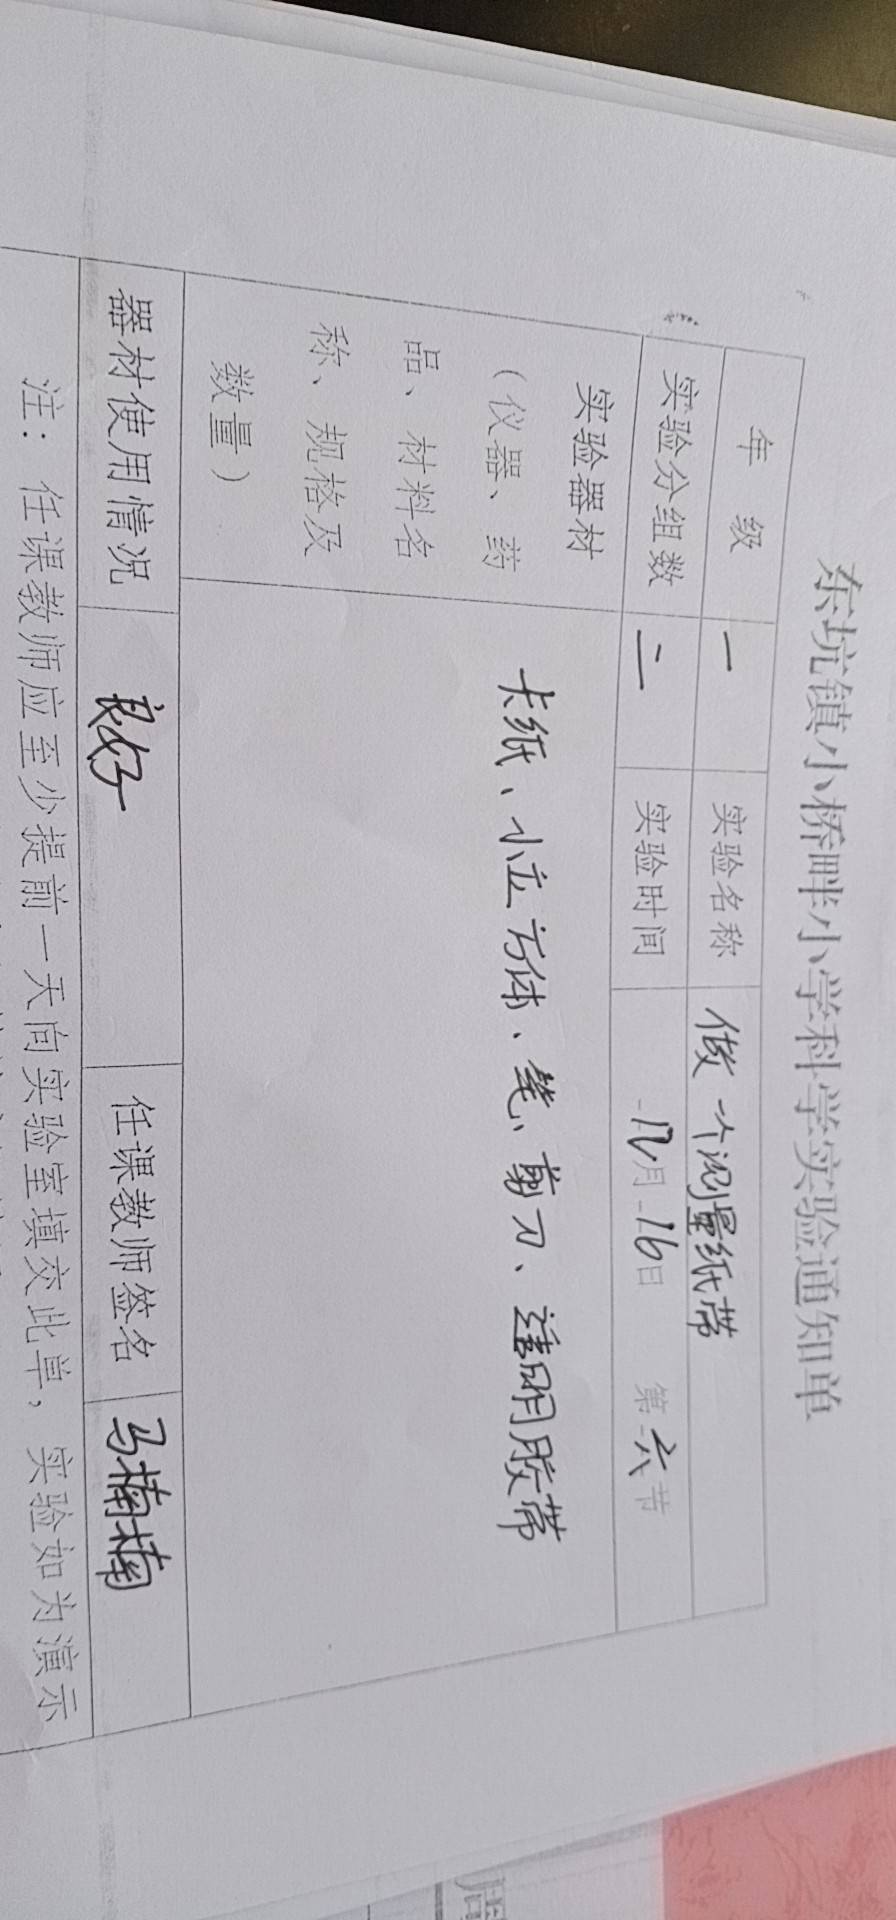 东坑镇小桥畔小学科学实验通知单
年 级 一 实验名称 做一个测量纸带
实验分组数 二 实验时间 12月16日 第六节
实验器材
（仪器、药
品、材料名
称、规格及
数量）
卡纸、小立方体、笔、剪刀、透明胶带
器材使用情况 良好 任课教师签名 马楠楠
注：任课教师应至少提前一天向实验室填交此单，实验如为演示